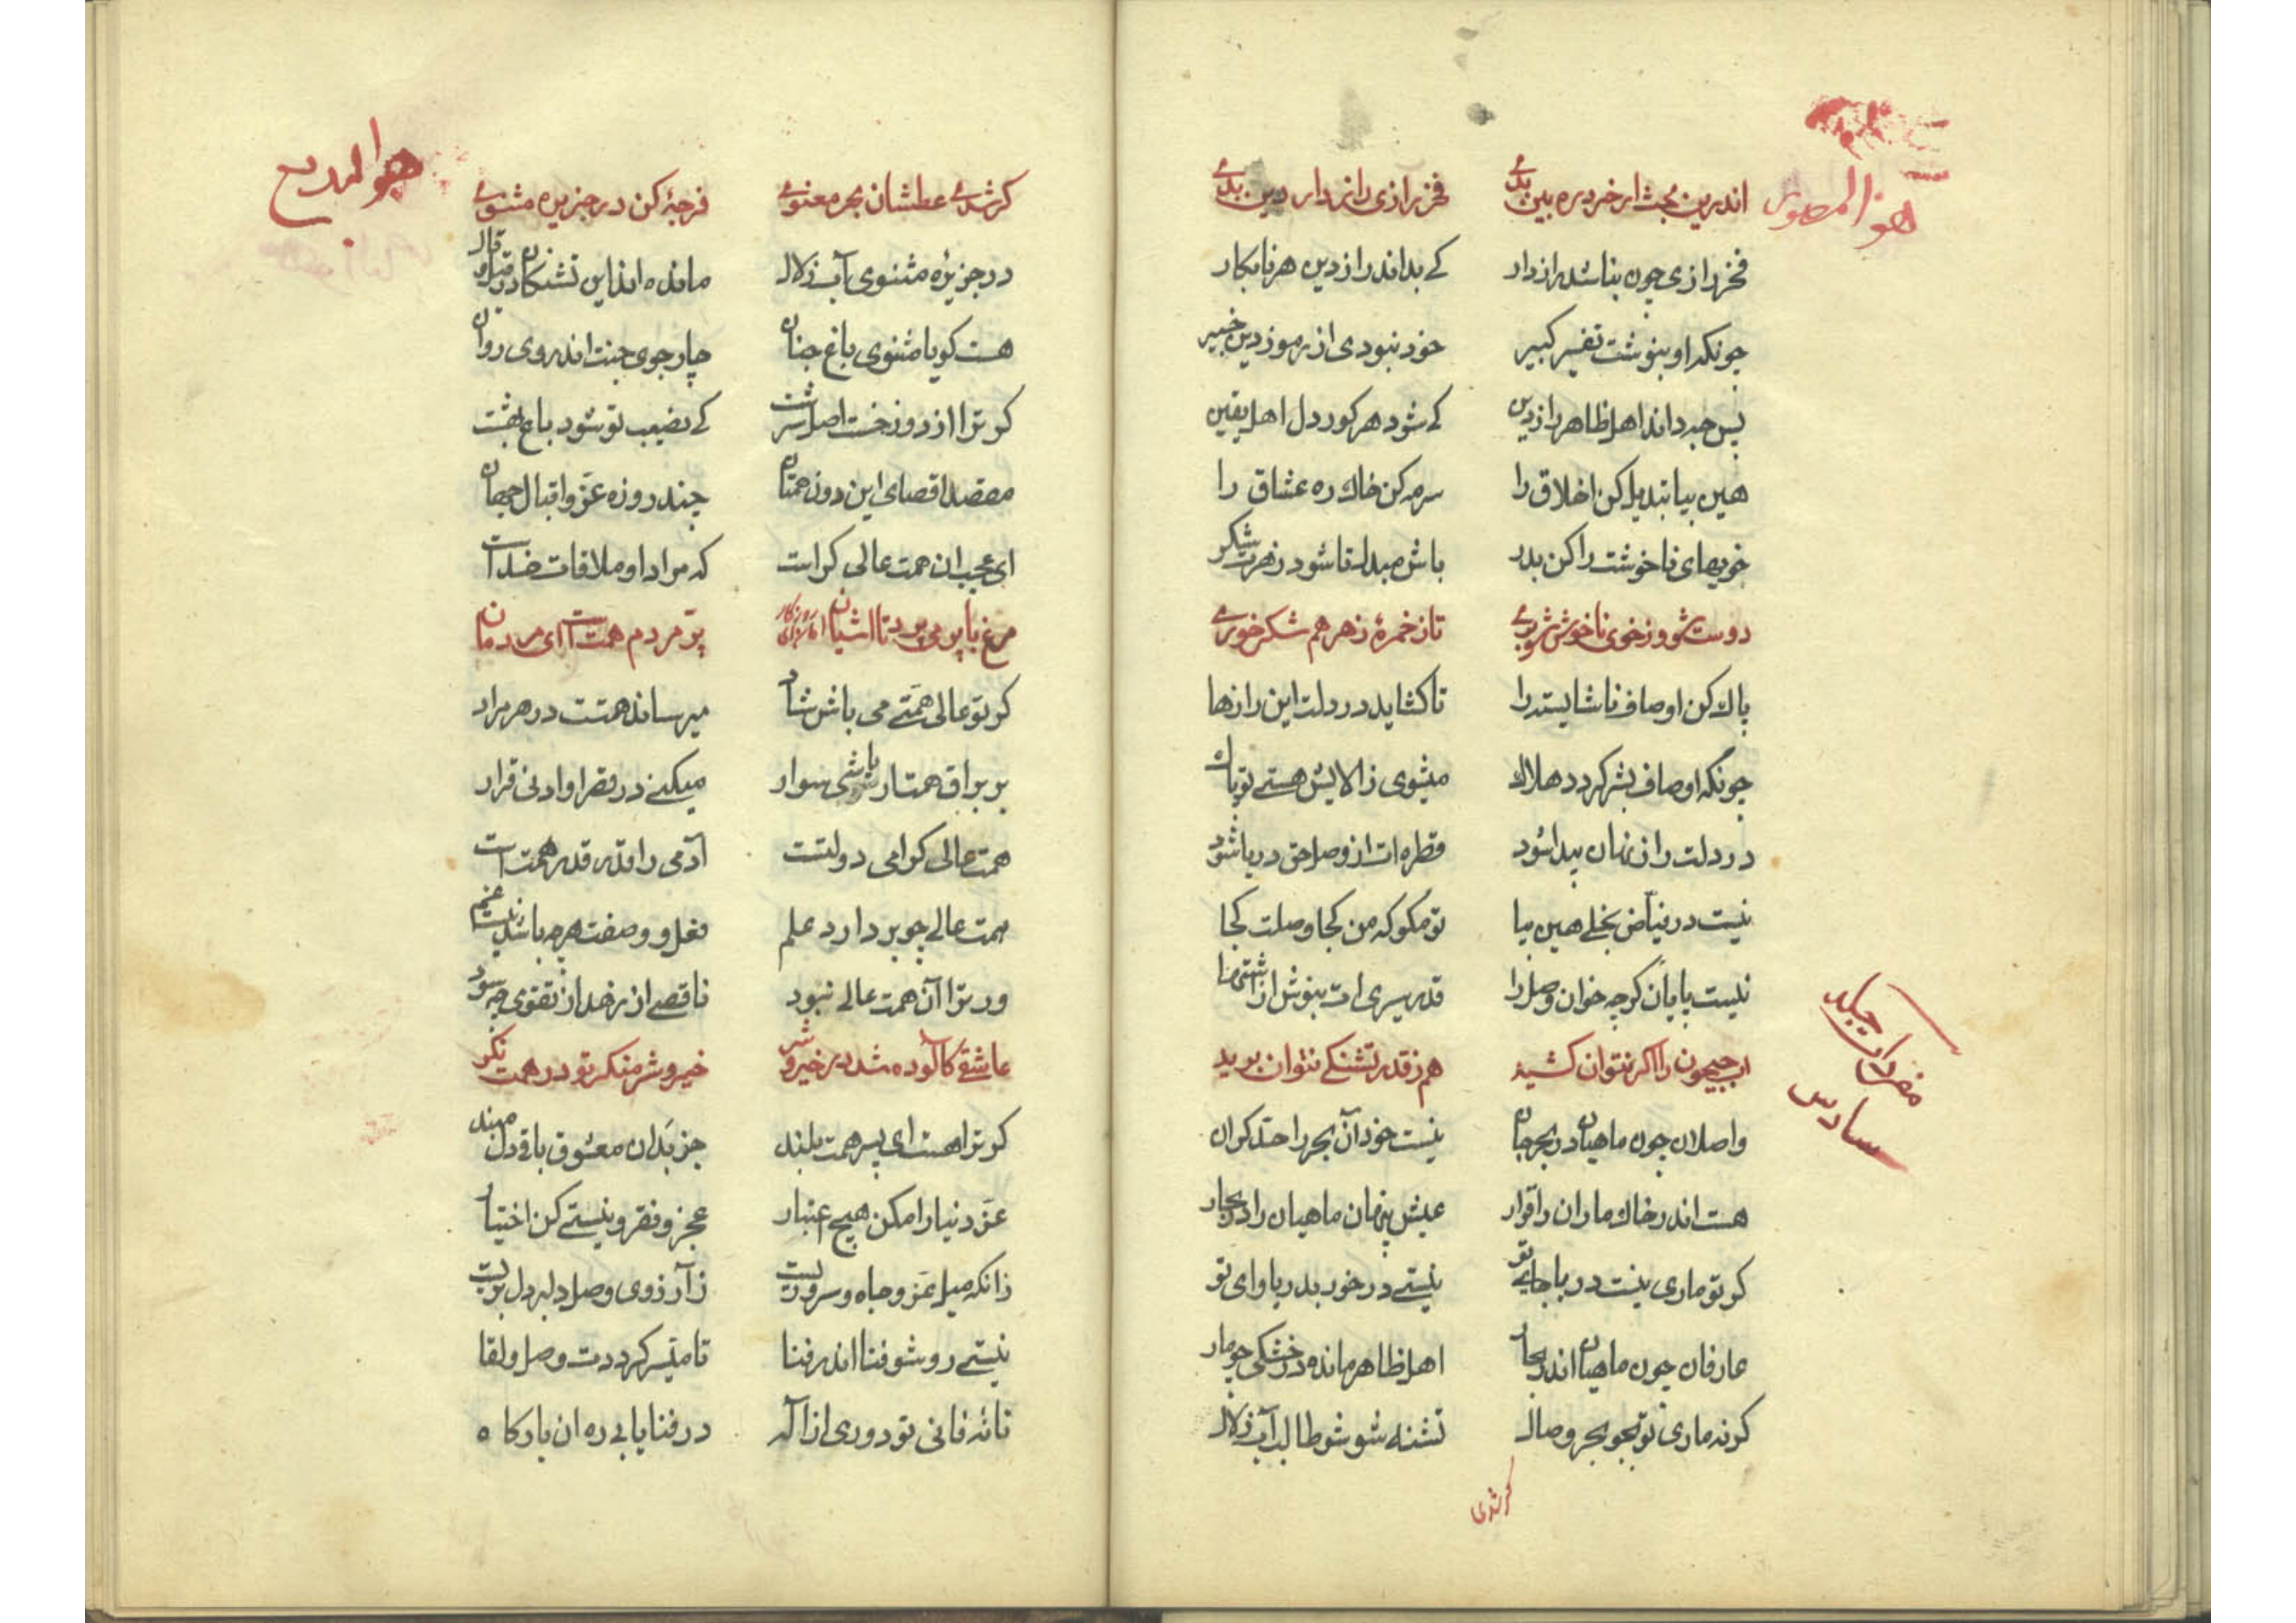 هو المصور
اندرین بحث ار خرد ره بین بدی فخر رازی رازدار دین بدی
فخر رازی چون بناشد رازدار کے بداند راز دین هر نابکار
چونکه او بنوشت تفسیر کبیر خود نبودی از رموز دین خبیر
پس چه داند اهل ظاهر راز دین کے شود هر کور دل اهل یقین
هین بیا تبدیل کن اخلاق را سرمه کن خاك ره عشاق را
خویهای ناخوشت را کن بدر باش مبدل تا شود زهرت شکر
دوست شو وز خوی ناخوش شو بری تا ز خمرهٔ زهر هم شکر خوری
پاك کن اوصاف ناشایسته را تا کشاید در دلت این رازها
چونکه اوصاف بشر کردد هلاك میشوی ز الایش هستے تو پاك
در دلت راز نهان پیدا شود قطره ات از وصل حق دریا شود
نیست در فیاض بخلے هین بیا تو مکو که من کجا وصلت کجا
نیست پایان کرچه خوان وصل را قدر سیری ات بنوش از اشتها
اب جیحون را اکر نتوان کشید هم ز قدر تشنکے نتوان برید
واصلان چون ماهیان در بحر جان نیست خود آن بحر را حد کران
هست اندر خاك ماران را قرار عیش پنهان ماهیان را در بحار
کر تو ماری نیست دریا جای تو نیستے در خور بدریا وای تو
عارفان چون ماهیان اندر بحار اهل ظاهر مانده در خشکی چو مار
کر نه ماری تو بجو بحر وصال تشنه شو شو طالب آب زلال
جلد
سادس
کر شدی
هو البدیع
کر شدی عطشان بحر معنوی فرجهٔ کن در جزیره مثنوی
در جزیرهٔ مثنوی آب زلال مانده اند این تشنکان در قیل و قال
هست کویا مثنوی باغ جنان چار جوی جنت اندر وی روان
کر ترا از دوزخست اصل سرشت کے نصیب تو شود باغ بهشت
مقصد اقصای این دون همتان چند روزه عز و اقبال جهان
ای عجب ان همت عالی کراست که مراد او ملاقات خداست
مرغ با پر می پرد تا اشیان پر مردم همت است ای مردمان
کر تو عالی همتے می باش شاد میرساند همتت در هر مراد
بر براق همت ار باشی سوار میکنے در قصر او ادنی قرار
همت عالی کرامی دولتست آدمی را قدر قدر همت است
همت عالے چو بر دارد علم فعل و وصفت هر چه باشد نیست غم
ور ترا آن همت عالے نبود ناقصے از زهد از تقوی چه سود
عاشقے کآلوده شد در خیر و شر خیر و شر منکر تو در همت نکر
کر ترا هست ای پسر همت بلند جز بدان معشوق باقے دل مبند
عز دنیا را مکن هیچ اعتبار عجز و فقر و نیستے کن اختیار
زانکه میل عز و جاه و سروریست ز آرزوی وصل دلبر دل بریست
نیستے رو شو فنا اندر فنا تا میسر کرددت وصل و لقا
تا نهٔ فانی تو دوری از اله در فنا یابے ره ان بارکاه